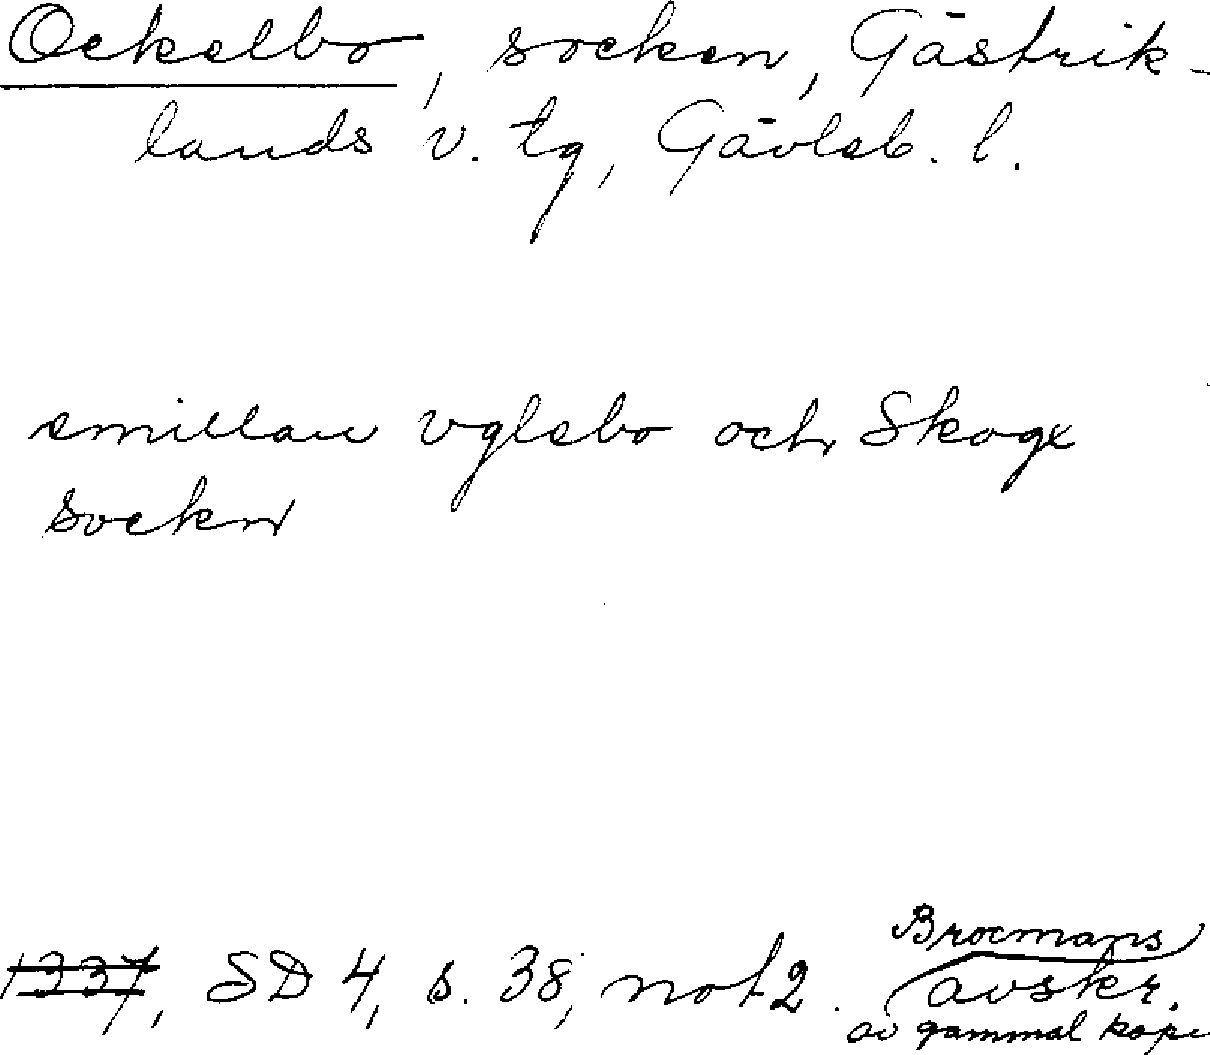 Ockelbo, socken, Gästrik-
lands v. tg, Gävleb. l.
emillan vglebo och Skogx
sockn
1337, SD 4, s. 38, not 2. Brocmans
avskr.
av gammal kopi